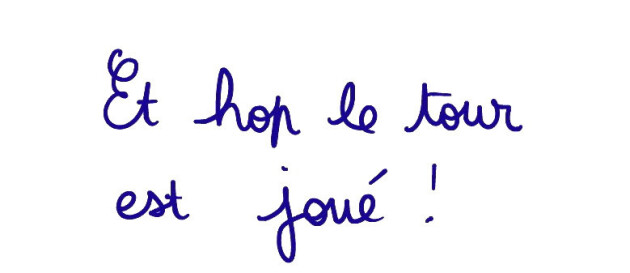 Et hop le tour
est joué !